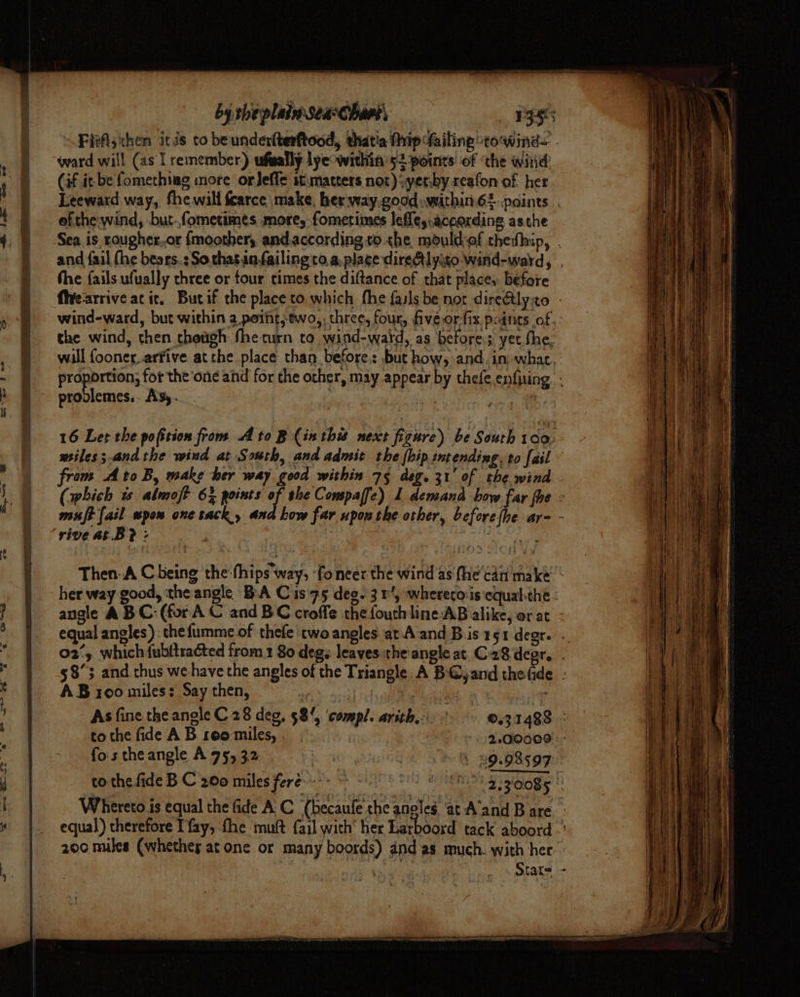 by the plain Sea-Chart. 135
First, then it is to be understerstood, that a ship sailing to wind-
ward will (as I remember) usually lye within 5½ points of the wind
(if it be something more or lesse it matters not) yet by reason of her
Leeward way, she will scarce make her way good within 6½ points
of the wind, but sometimes more, sometimes lesse, according as the
Sea is rougher or smoother, and according to the mould of the ship,
and sail she bears: So that in sailing to a place directly to wind-ward,
she sails usually three or four times the distance of that place, before
she arrive at it. But if the place to which she sails be not directly to
wind-ward, but within a point, two, three, four, five or six points of
the wind, then though she turn to wind-ward, as before; yet she
will sooner arrive at the place than before: but how, and in what
proportion; for the one and for the other, may appear by these ensuing
problemes. As,
16 Let the position from A to B (in this next figure) be South 100
miles; and the wind at South, and admit the ship intending to sail
from A to B, make her way good within 75 deg. 31′ of the wind
(which is almost 6¾ points of the Compasse) I demand how far she
must sail upon one tack, and how far upon the other, before she ar-
rive at B?
Then A C being the ships way, so neer the wind as she can make
her way good, the angle B A C is 75 deg. 31′, whereto is equal the
angle A B C: (for A C and B C crosse the south line AB alike, or at
equal angles) the summe of these two angles at A and B is 151 degr.
02′, which subttracted from 180 deg. leaves the angle at C 28 degr.
58′; and thus we have the angles of the Triangle A B C, and the side
A B 100 miles: Say then,
As sine the angle C 28 deg. 58′, compl. arith. 0.31488
to the side A B 100 miles, 2.00000
so s the angle A 75, 32 9.98597
to the side B C 200 miles ferè 2.30085
Whereto is equal the side A C (because the angles at A and B are
equal) therefore I say, she must sail with her Larboord tack aboord
200 miles (whether at one or many boords) and as much with her
Star-